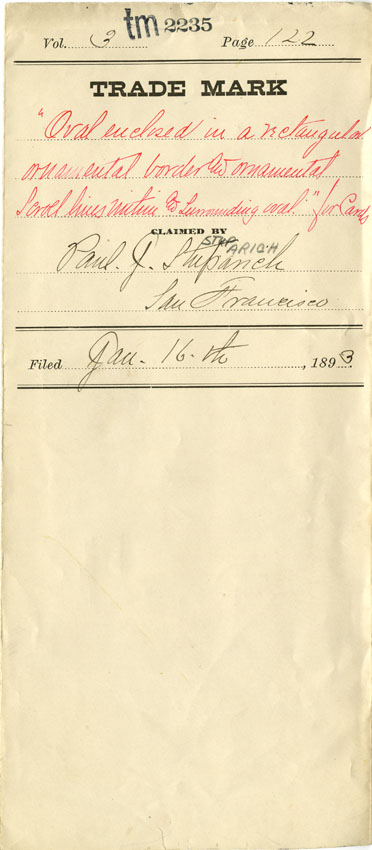 tm 2235
Vol. 3 Page 122
TRADE MARK
"Oval enclosed in a rectangular
ornamental border & ornamental
Scroll lines within & surrounding oval." for Cards
CLAIMED BY
STEPARICH
Paul J. Steparich
San Francisco
Filed Jan. 16th, 1893.